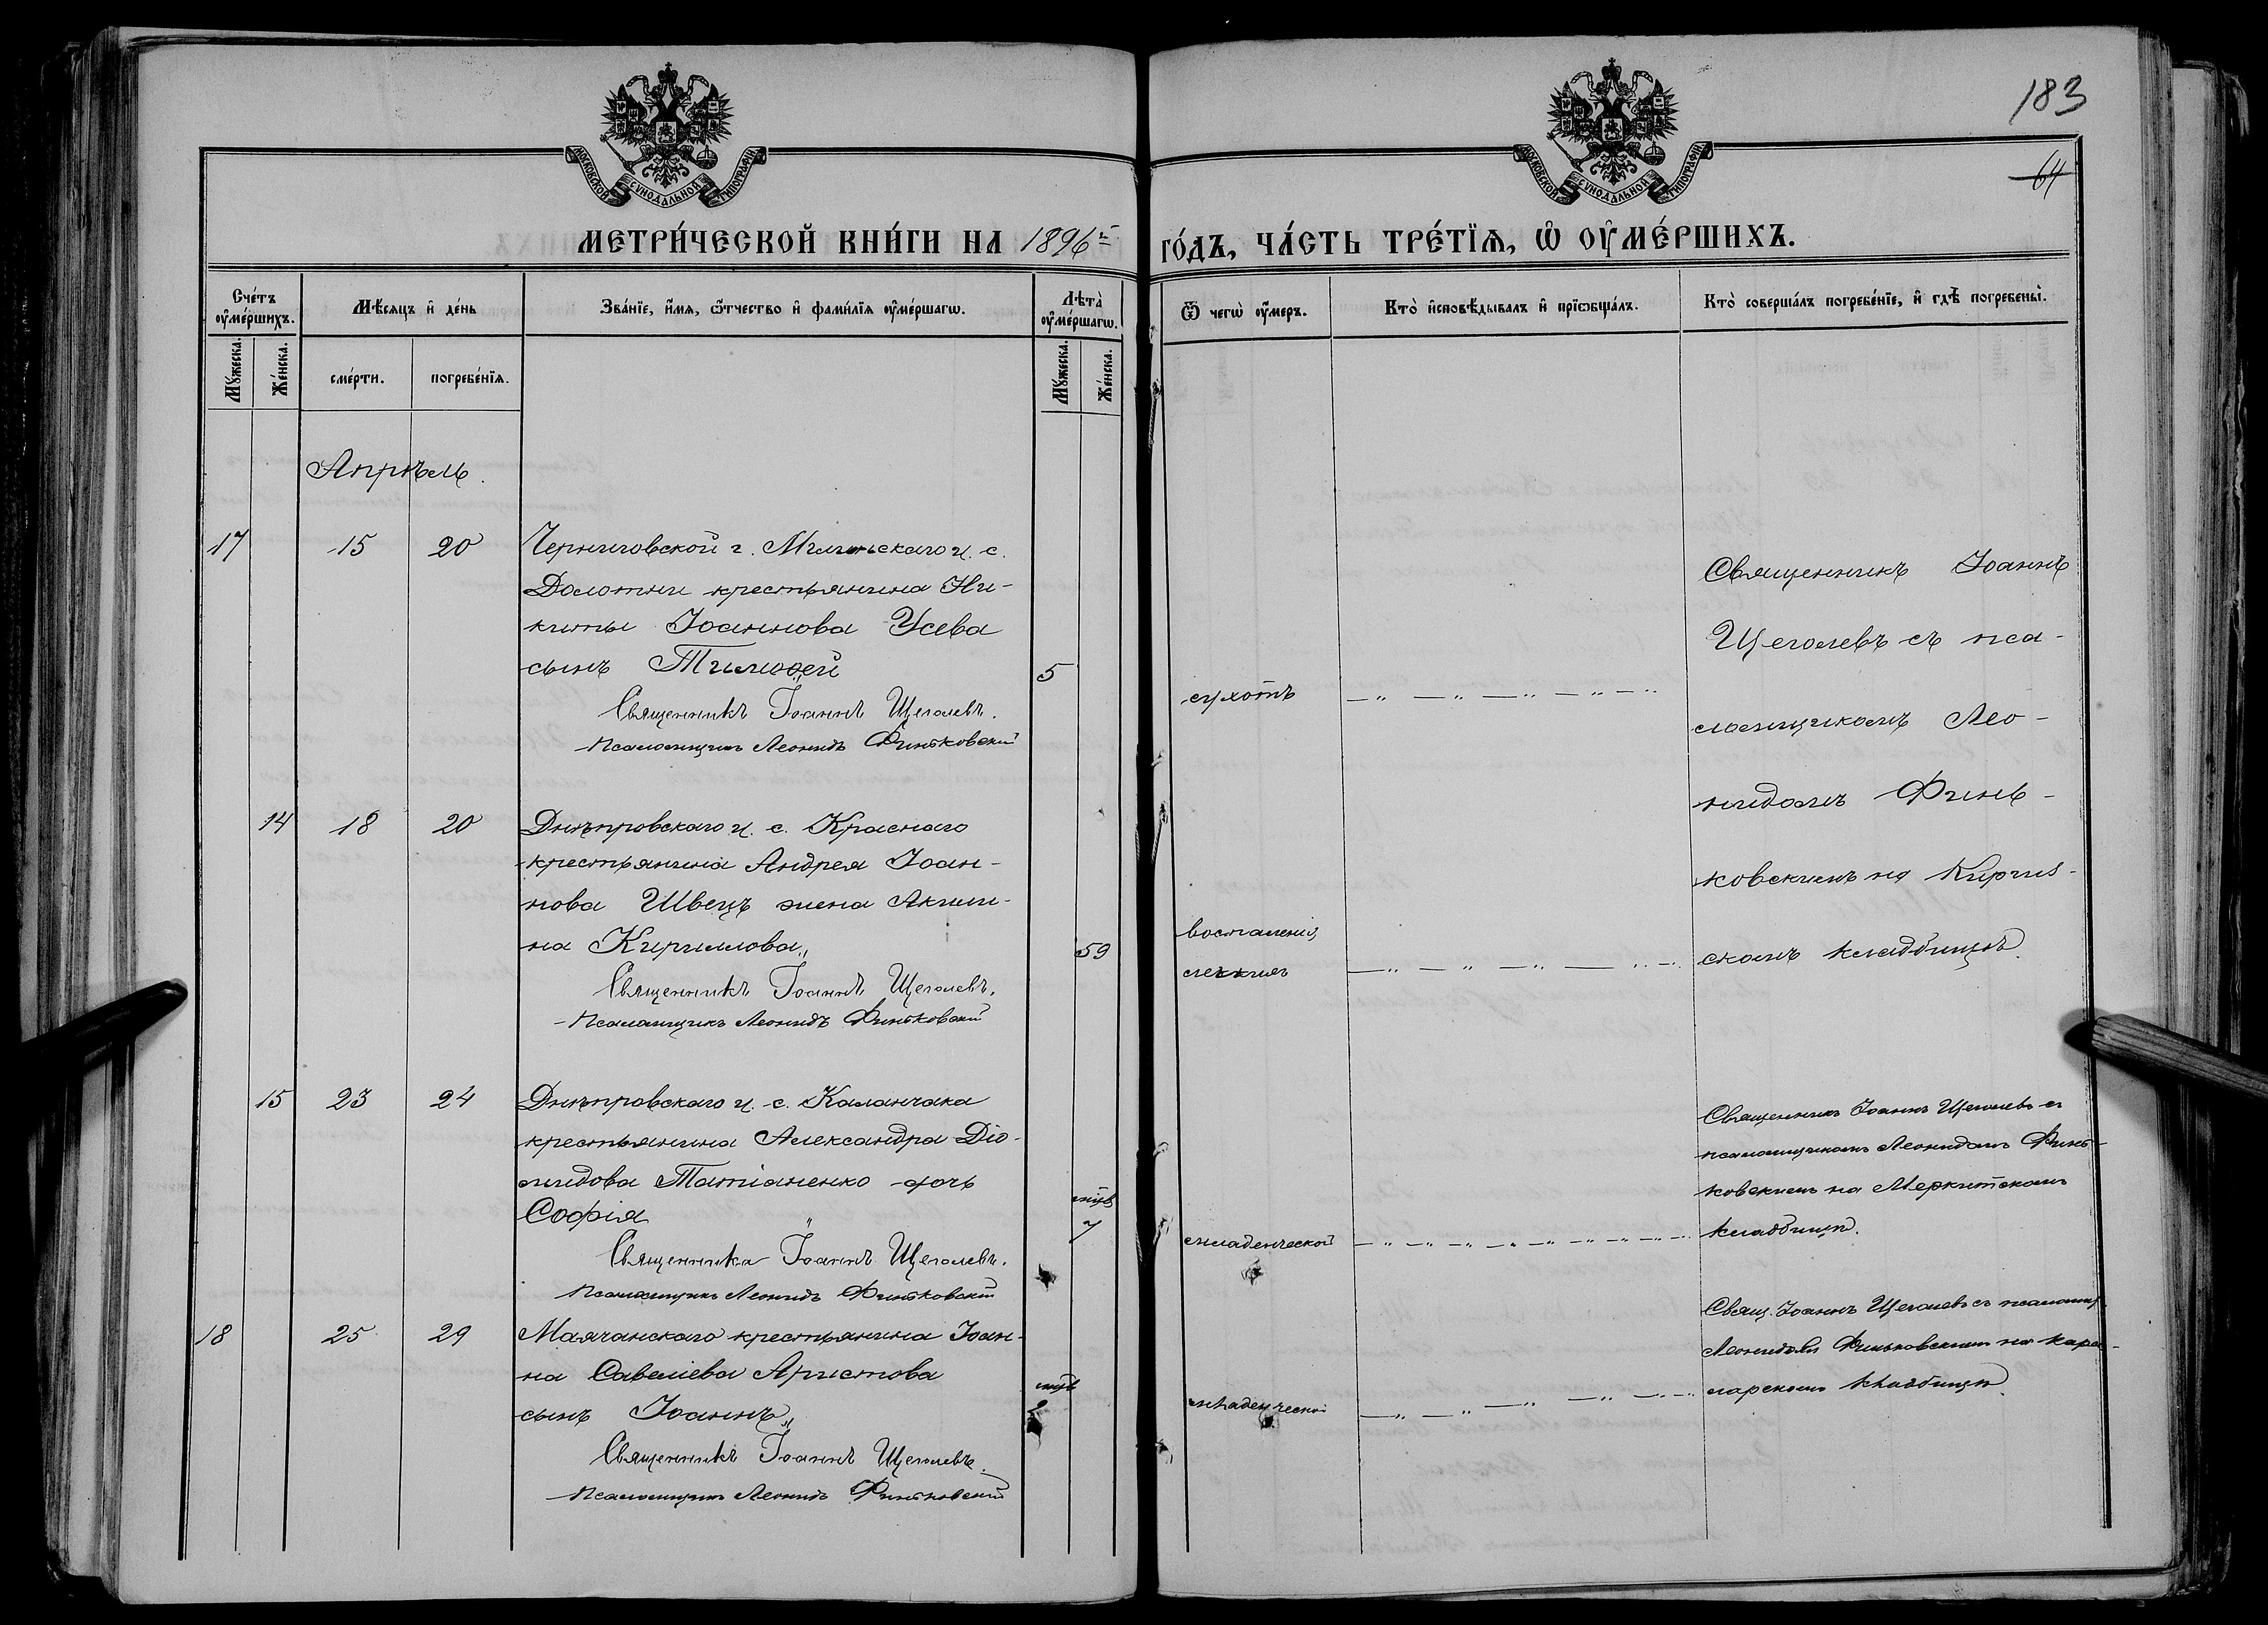 183
64
МОСКОВСКОЙ СѴНОДАЛЬНОЙ ТИПОГРАФІИ
МОСКОВСКОЙ СѴНОДАЛЬНОЙ ТИПОГРАФІИ
МЕТРИ́ЧЕСКОЙ КНИ́ГИ НА 1896й ГО́ДЪ, ЧА́СТЬ ТРЕ́ТЇѦ, Ѡ҆ ОУ҆МЕ́РШИХЪ.
Сче́тъ оу҆ме́ршихъ.
Мѣ́сяцъ и҆ де́нь
Зва́нїе, и҆́мя, ѻ҆́тчество и҆ фами́лїя оу҆ме́ршагѡ.
Лѣ́та оу҆ме́ршагѡ.
Ѿ чегѡ̀ оу҆́меръ.
Кто̀ и҆сповѣ́дывалъ и҆ прїѡбща́лъ.
Кто̀ соверша́лъ погребе́нїе, и҆ гдѣ̀ погребены̀.
Мꙋ́жеска.
Же́нска.
сме́рти.
погребе́нїя.
Мꙋ́жеска.
Же́нска.
Апрѣль.
17 15 20 Черниговской г. Мглинскаго у. с.
Долотни крестьянина Ни-
киты Іоаннова Усева
сынъ Тимоѳей 5
Священникъ Іоаннъ Щеголевъ.
Псаломщикъ Леонидъ Финьковскій
сухотъ
Священникъ Іоаннъ
Щеголевъ съ пса-
ломщикомъ Лео-
нидомъ Финь-
ковскимъ на Киргиз-
скомъ кладбищѣ.
14 18 20 Днѣпровскаго у. с. Краснаго
крестьянина Андрея Іоан-
нова Швецъ жена Акили-
на Кириллова 59
Священникъ Іоаннъ Щеголевъ.
Псаломщикъ Леонидъ Финьковскій
воспаленія
легкихъ
15 23 24 Днѣпровскаго у. с. Каланчака
крестьянина Александра Діо-
мидова Татіаненко дочь
София
мцв
7
Священникъ Іоаннъ Щеголевъ.
Псаломщикъ Леонидъ Финьковскій
младенческой
Священникъ Іоаннъ Щеголевъ съ
псаломщикомъ Леонидомъ Финь-
ковскимъ на Меркитскомъ
кладбищѣ.
18 25 29 Маячанскаго крестьянина Іоан-
на Савеліева Аристова
сынъ Іоаннъ
мцв
Священникъ Іоаннъ Щеголевъ.
Псаломщикъ Леонидъ Финьковскій
младенческой
Свящ. Іоаннъ Щеголевъ съ псаломщ.
Леонидомъ Финьковскимъ на Кара-
ларскомъ кладбищѣ